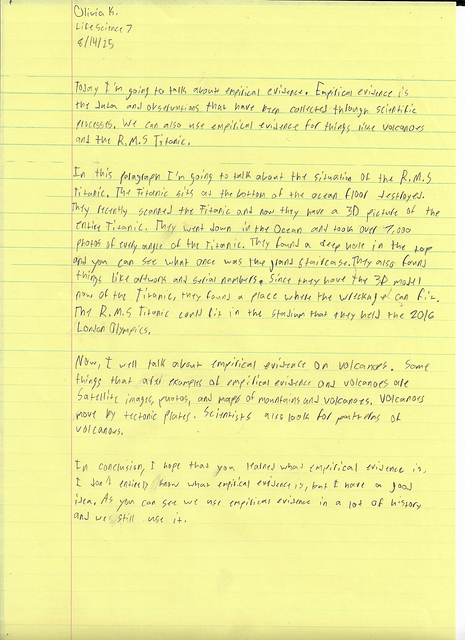 Olivia K.
Life Science 7
8/14/25
Today I'm going to talk about empirical evidence. Empirical evidence is
the data and observations that have been collected through scientific
processes. We can also use empirical evidence for things like volcanoes
and the R.M.S Titanic.
In this paragraph I'm going to talk about the situation of the R.M.S
Titanic. The Titanic sits at the bottom of the ocean floor destroyed.
They recently scanned the Titanic and now they have a 3D picture of the
entire Titanic. They went down in the Ocean and took over 7,000
photos of every angle of the Titanic. They found a deep hole in the top
and you can see what once was the grand staircase. They also found
things like artwork and serial numbers. Since they have the 3D model
now of the Titanic, they found a place where the wreckage can fit.
The R.M.S Titanic could fit in the stadium that they held the 2016
London Olympics.
Now, I well talk about empirical evidence on volcanoes. Some
things that are examples of empirical evidence and volcanoes are
Satellite images, photos, and maps of mountains and volcanoes. Volcanoes
move by tectonic plates. Scientists also look for patterns of
volcanoes.
In conclusion, I hope that you learned what empirical evidence is,
I don't entirely know what empirical evidence is, but I have a good
idea. As you can see we use empirical evidence in a lot of history
and we still use it.